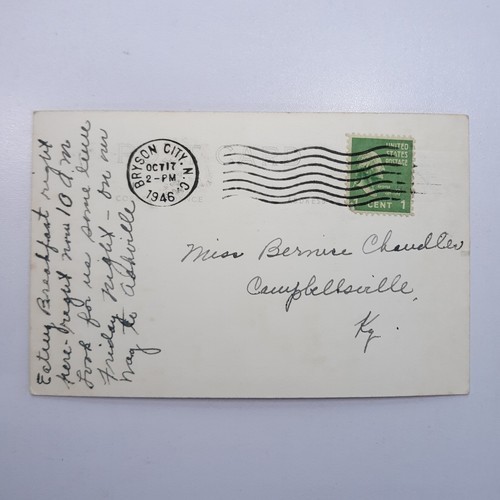 Eating Breakfast right
here - right now 10 A.M
Look for us some time
Friday night - on our
way to Ashville
BRYSON CITY, N.C.
OCT 17
2 - PM
1946
UNITED
STATES
POSTAGE
CENT 1
Miss Bernice Chandler
Campbellsville,
Ky.